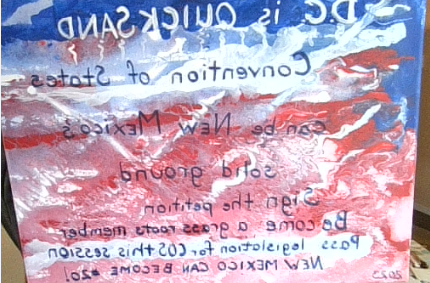 D.C. is QUICKSAND
Convention of States
can be New Mexico's
solid ground
Sign the petition
Become a grass roots member
Pass legislation for COS this session
NEW MEXICO CAN BECOME #20!
2023